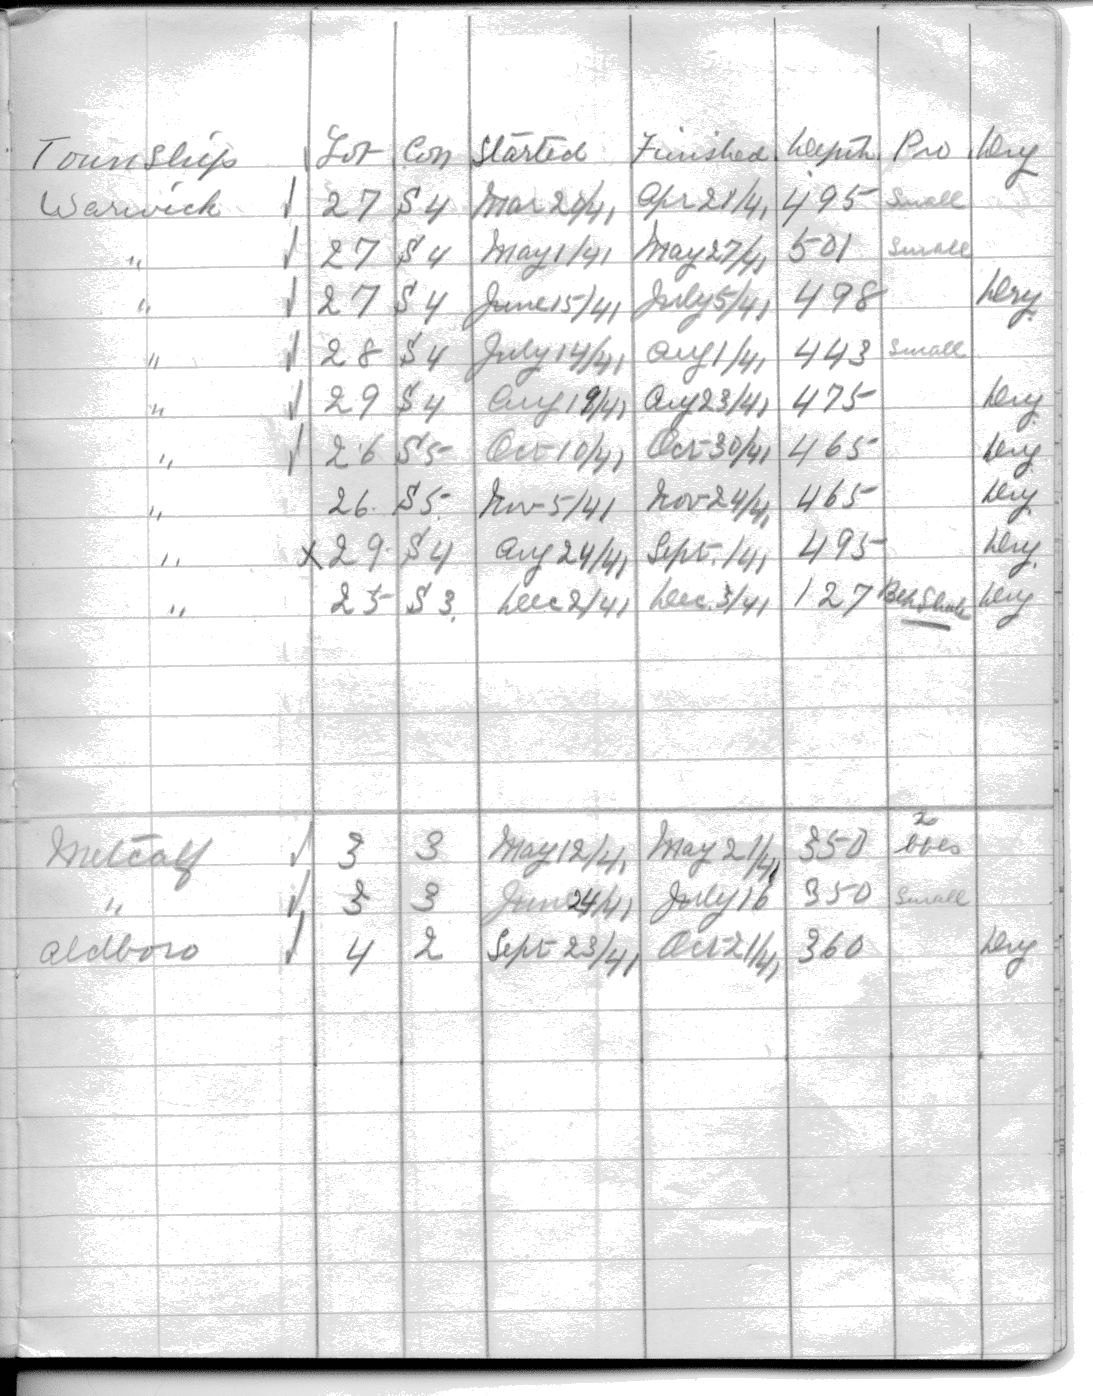 Township √ Lot Con Started Finished Depth Pro Dry
Warwick √ 27 S 4 Mar 20/41 Apr 21/41 495 Small
" √ 27 S 4 May 1/41 May 27/41 501 Small
" √ 27 S 4 June 15/41 July 5/41 498 Dry
" √ 28 S 4 July 14/41 Aug 1/41 443 Small
" √ 29 S 4 Aug 19/41 Aug 23/41 475 Dry
" √ 26 S 5 Oct 10/41 Oct 30/41 465 Dry
" 26 S 5 Nov 5/41 Nov 24/41 465 Dry
" x 29 S 4 Aug 24/41 Sept. 1/41 495 Dry
" 25 S 3 Dec 2/41 Dec. 3/41 127 Dry
2
Metcalf √ 3 3 May 12/41 May 21/41 350 bbls
" √ 3 3 June 24/41 July 16 350 Small
Aldboro √ 4 2 Sept 23/41 Oct 21/41 360 Dry